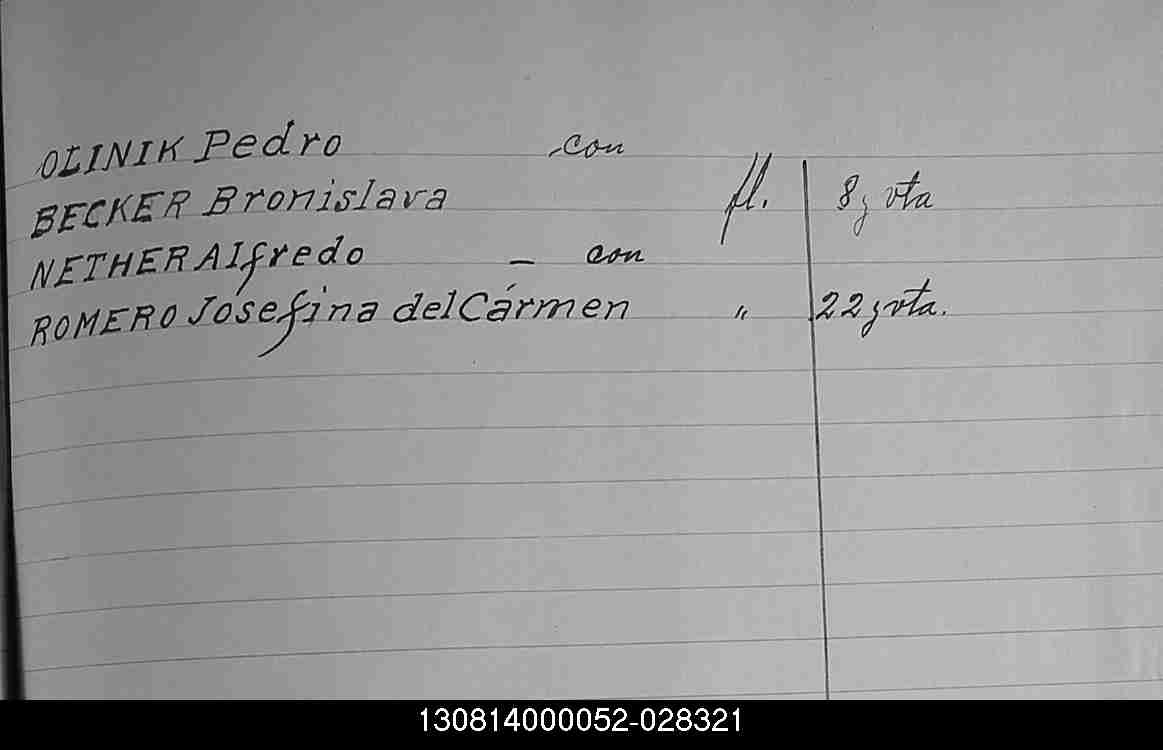 OLINIK Pedro con
BECKER Bronislava fl. 8 y vta
NETHER Alfredo - con
ROMERO Josefina del Cármen " 22 y vta.
130814000052-028321